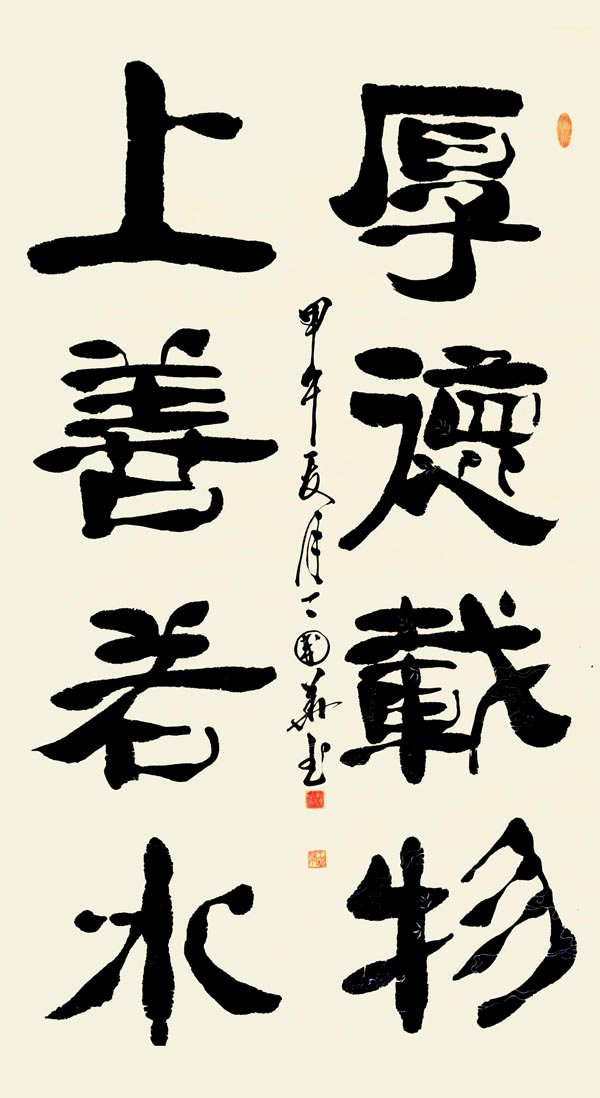 厚德載物
甲午夏月華书
上善若水